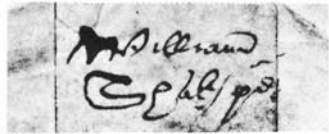 William
Shakspe